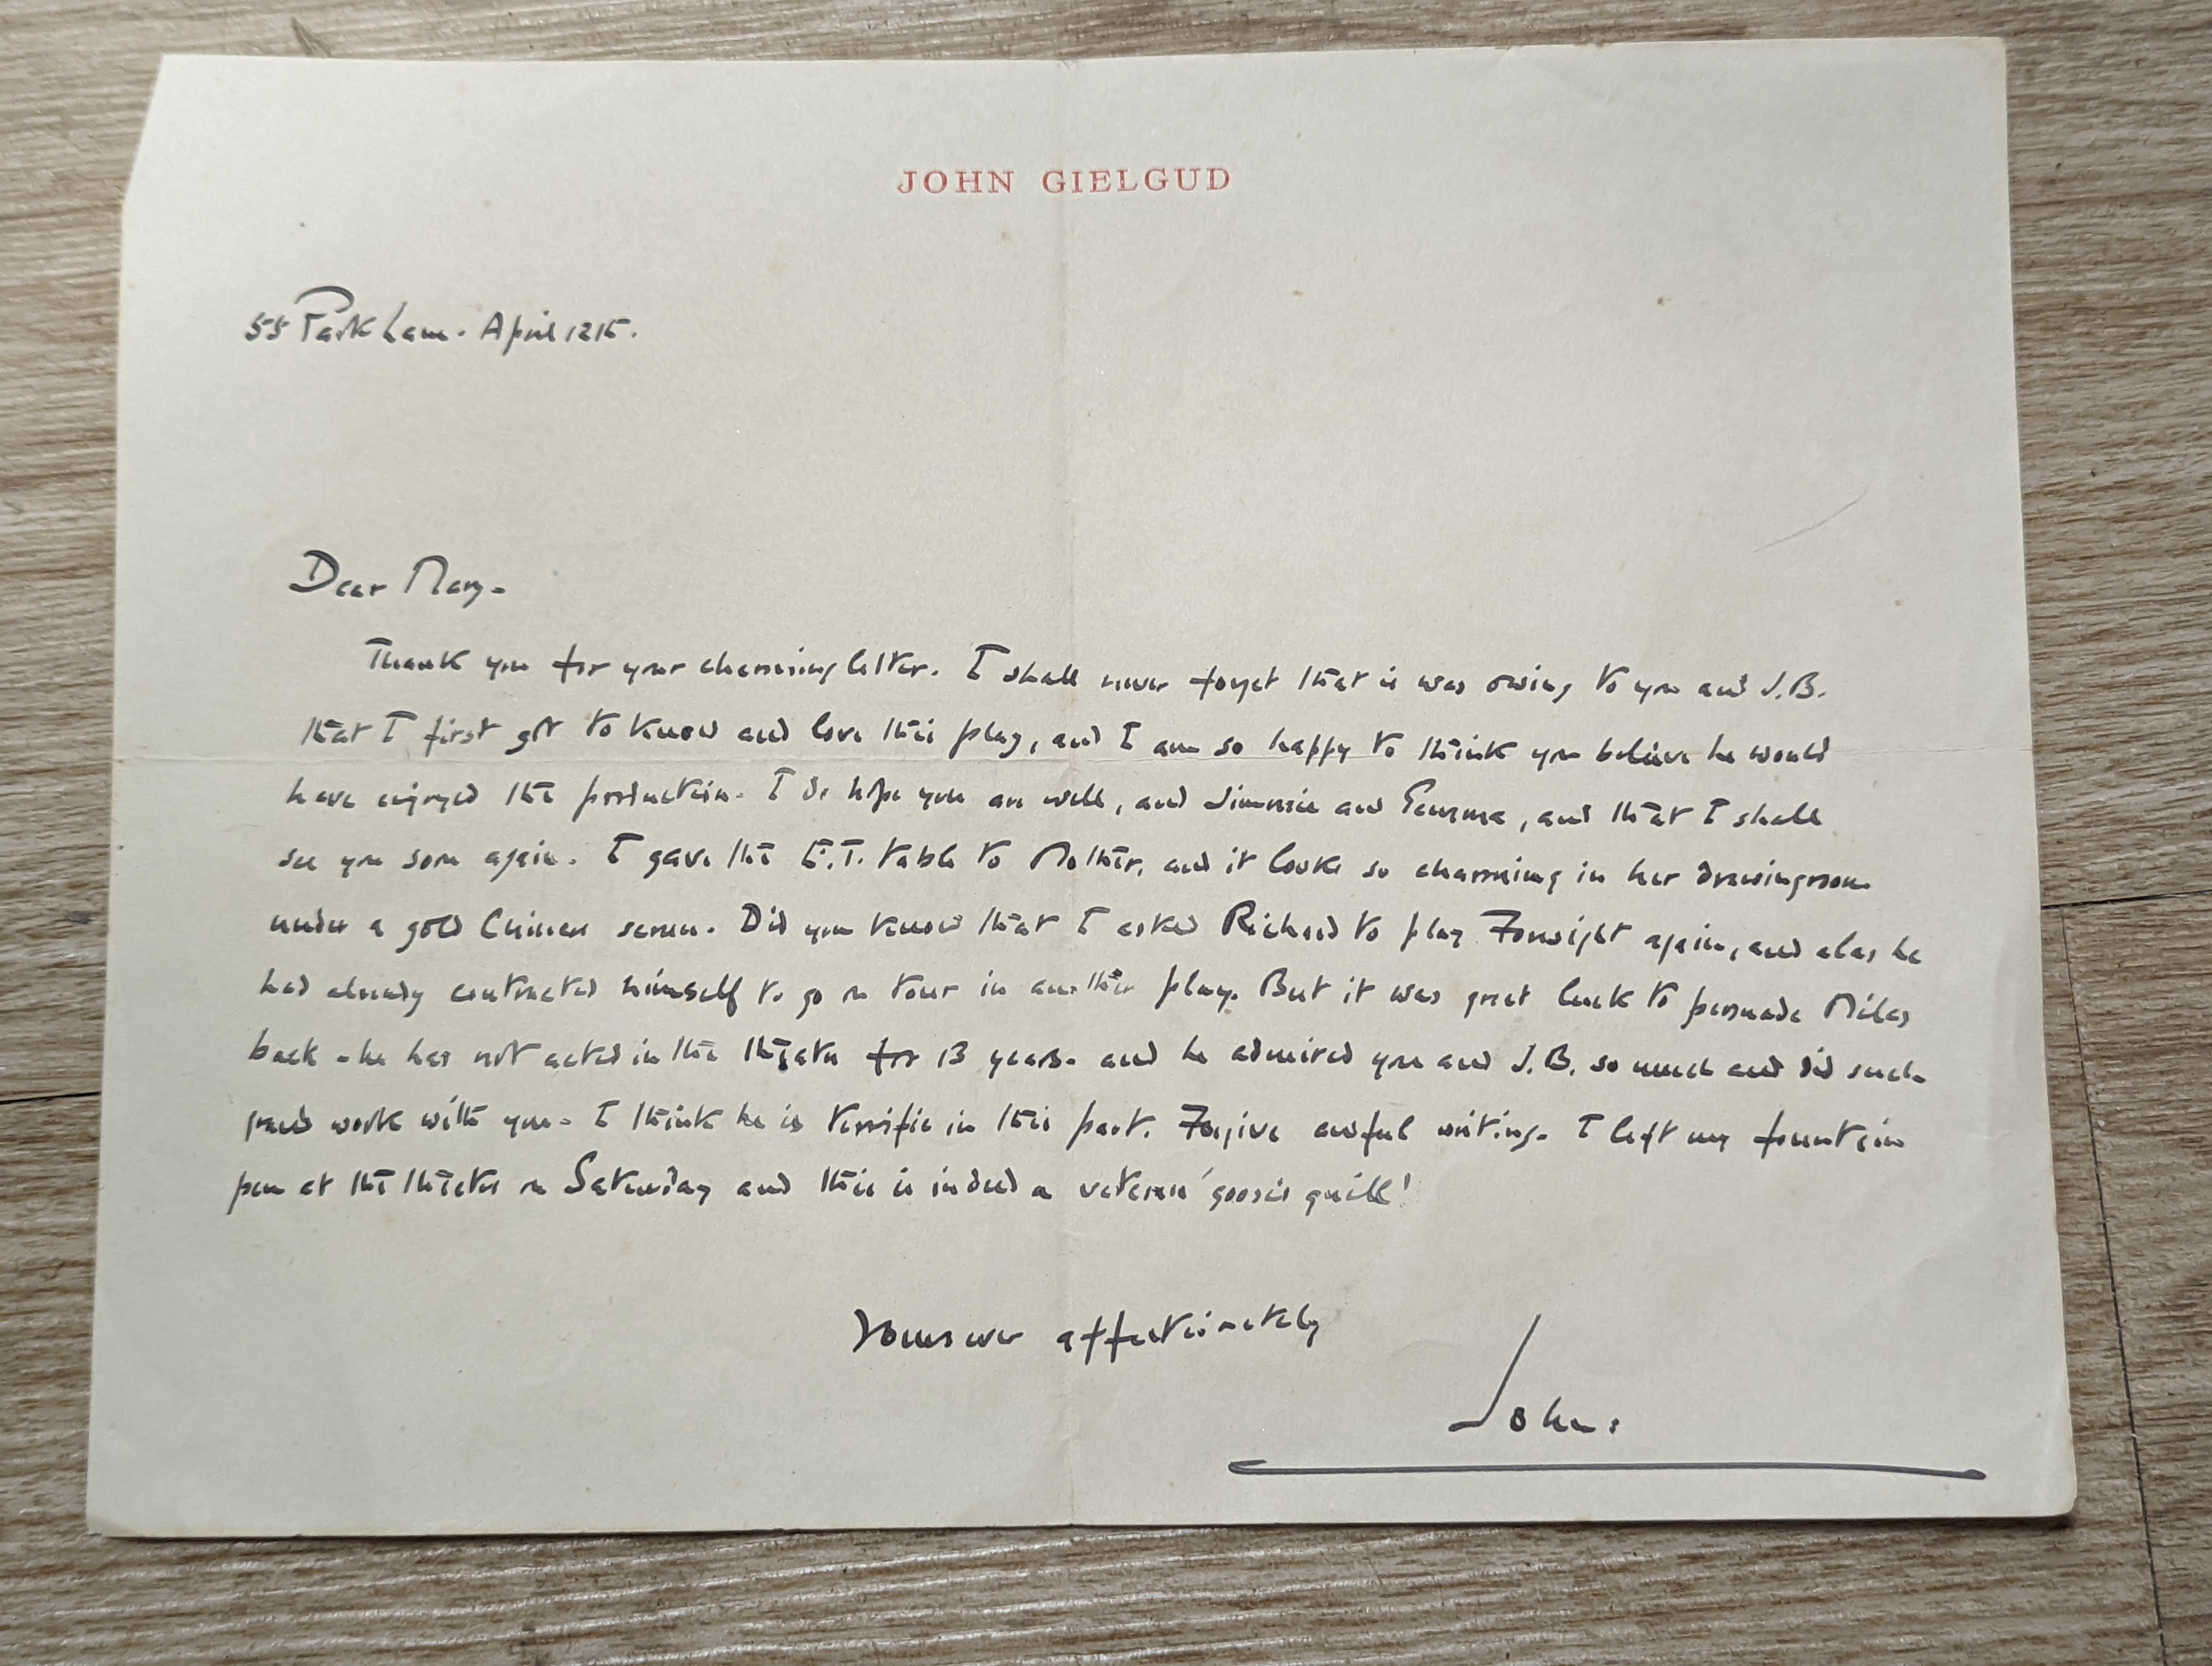 JOHN GIELGUD
55 Park Lane. April 12th.
Dear Mary -
Thank you for your charming letter. I shall never forget that it was owing to you and J.B.
that I first got to know and love this play, and I am so happy to think you believe he would
have enjoyed the production. I do hope you are well, and Jimmie and Gemma, and that I shall
see you soon again. I gave the E.T. table to Mother, and it looks so charming in her drawingroom
under a gold Chinese screen. Did you know that I asked Richard to play Foresight again, and alas he
had already contracted himself to go on tour in another play. But it was great luck to persuade Miles
back - he has not acted in the theatre for 13 years - and he admired you and J.B. so much and did such
good work with you - I think he is terrific in this part. Forgive awful writing - I left my fountain
pen at the theatre on Saturday and this is indeed a veteran 'goose's quill'!
Yours ever affectionately
John.